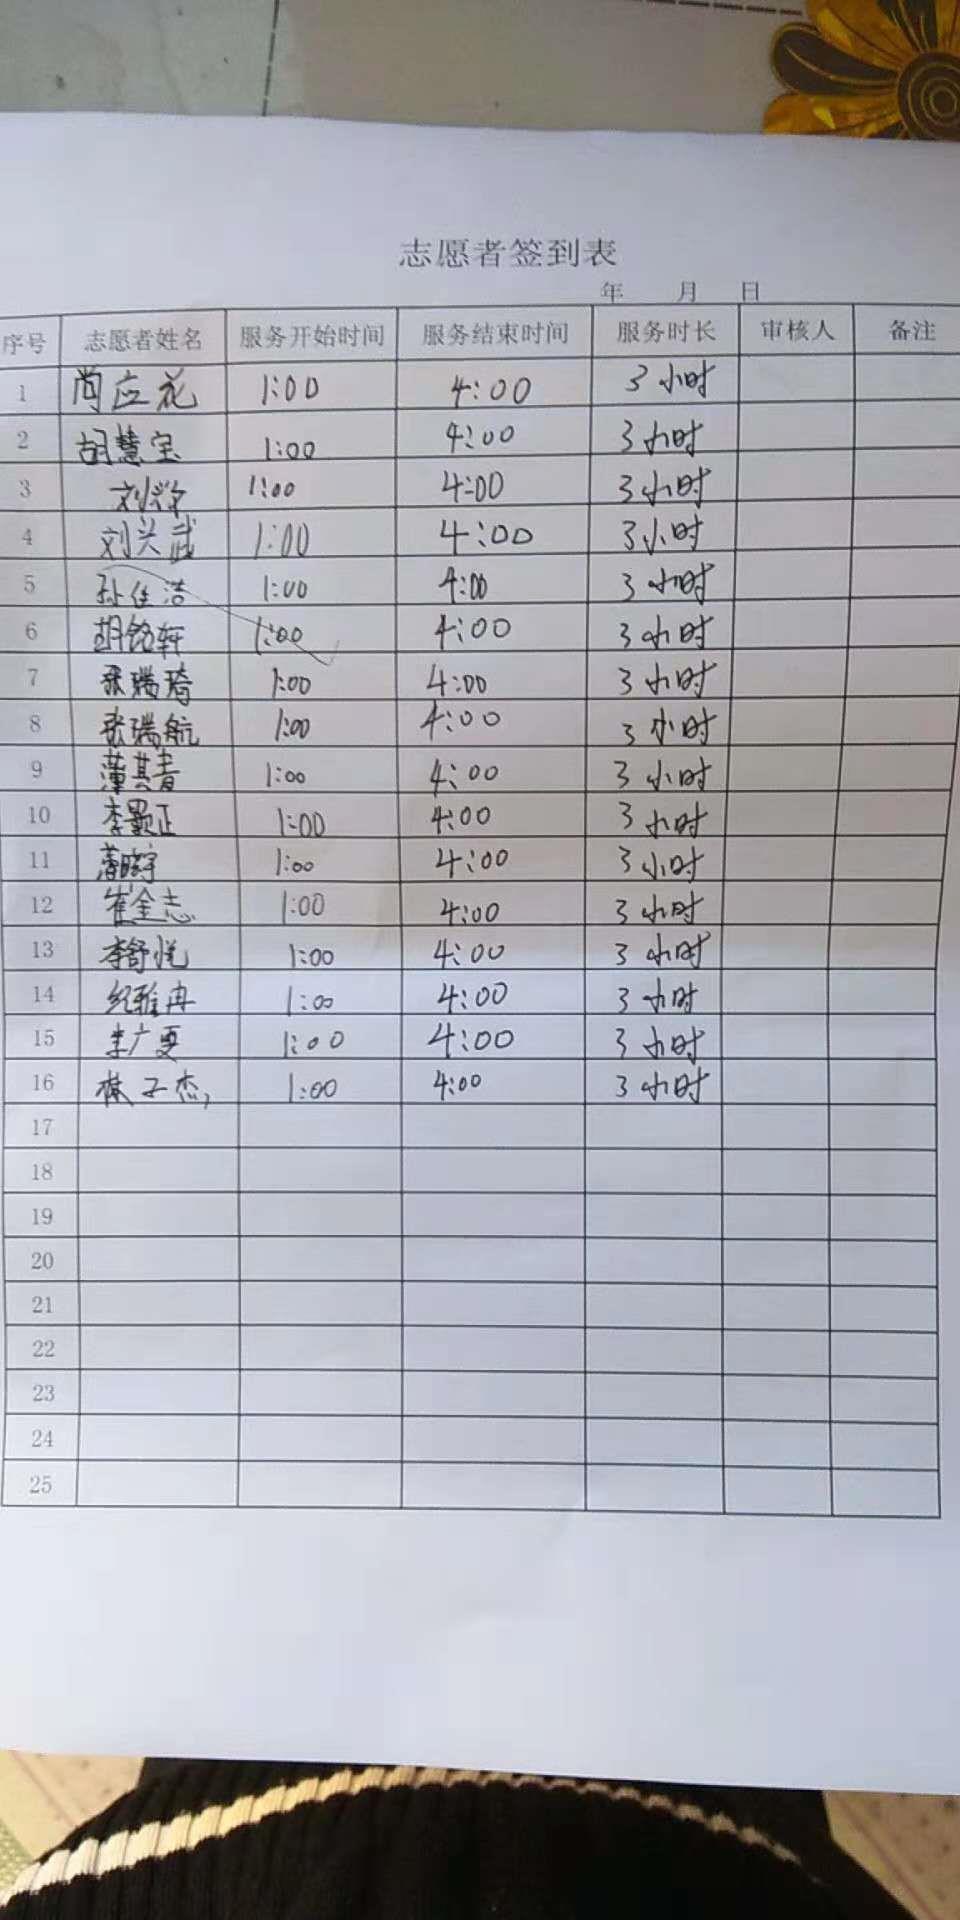 志愿者签到表
年 月 日
序号 志愿者姓名 服务开始时间 服务结束时间 服务时长 审核人 备注
1 尚应花 1:00 4:00 3小时
2 胡慧宝 1:00 4:00 3小时
3 1:00 4:00 3小时
4 刘兴武 1:00 4:00 3小时
5 孙佳洁 1:00 4:00 3小时
6 胡铭轩 1:00 4:00 3小时
7 张瑞琦 1:00 4:00 3小时
8 张瑞航 1:00 4:00 3小时
9 1:00 4:00 3小时
10 1:00 4:00 3小时
11 1:00 4:00 3小时
12 崔金志 1:00 4:00 3小时
13 李舒悦 1:00 4:00 3小时
14 纪雅冉 1:00 4:00 3小时
15 1:00 4:00 3小时
16 1:00 4:00 3小时
17
18
19
20
21
22
23
24
25